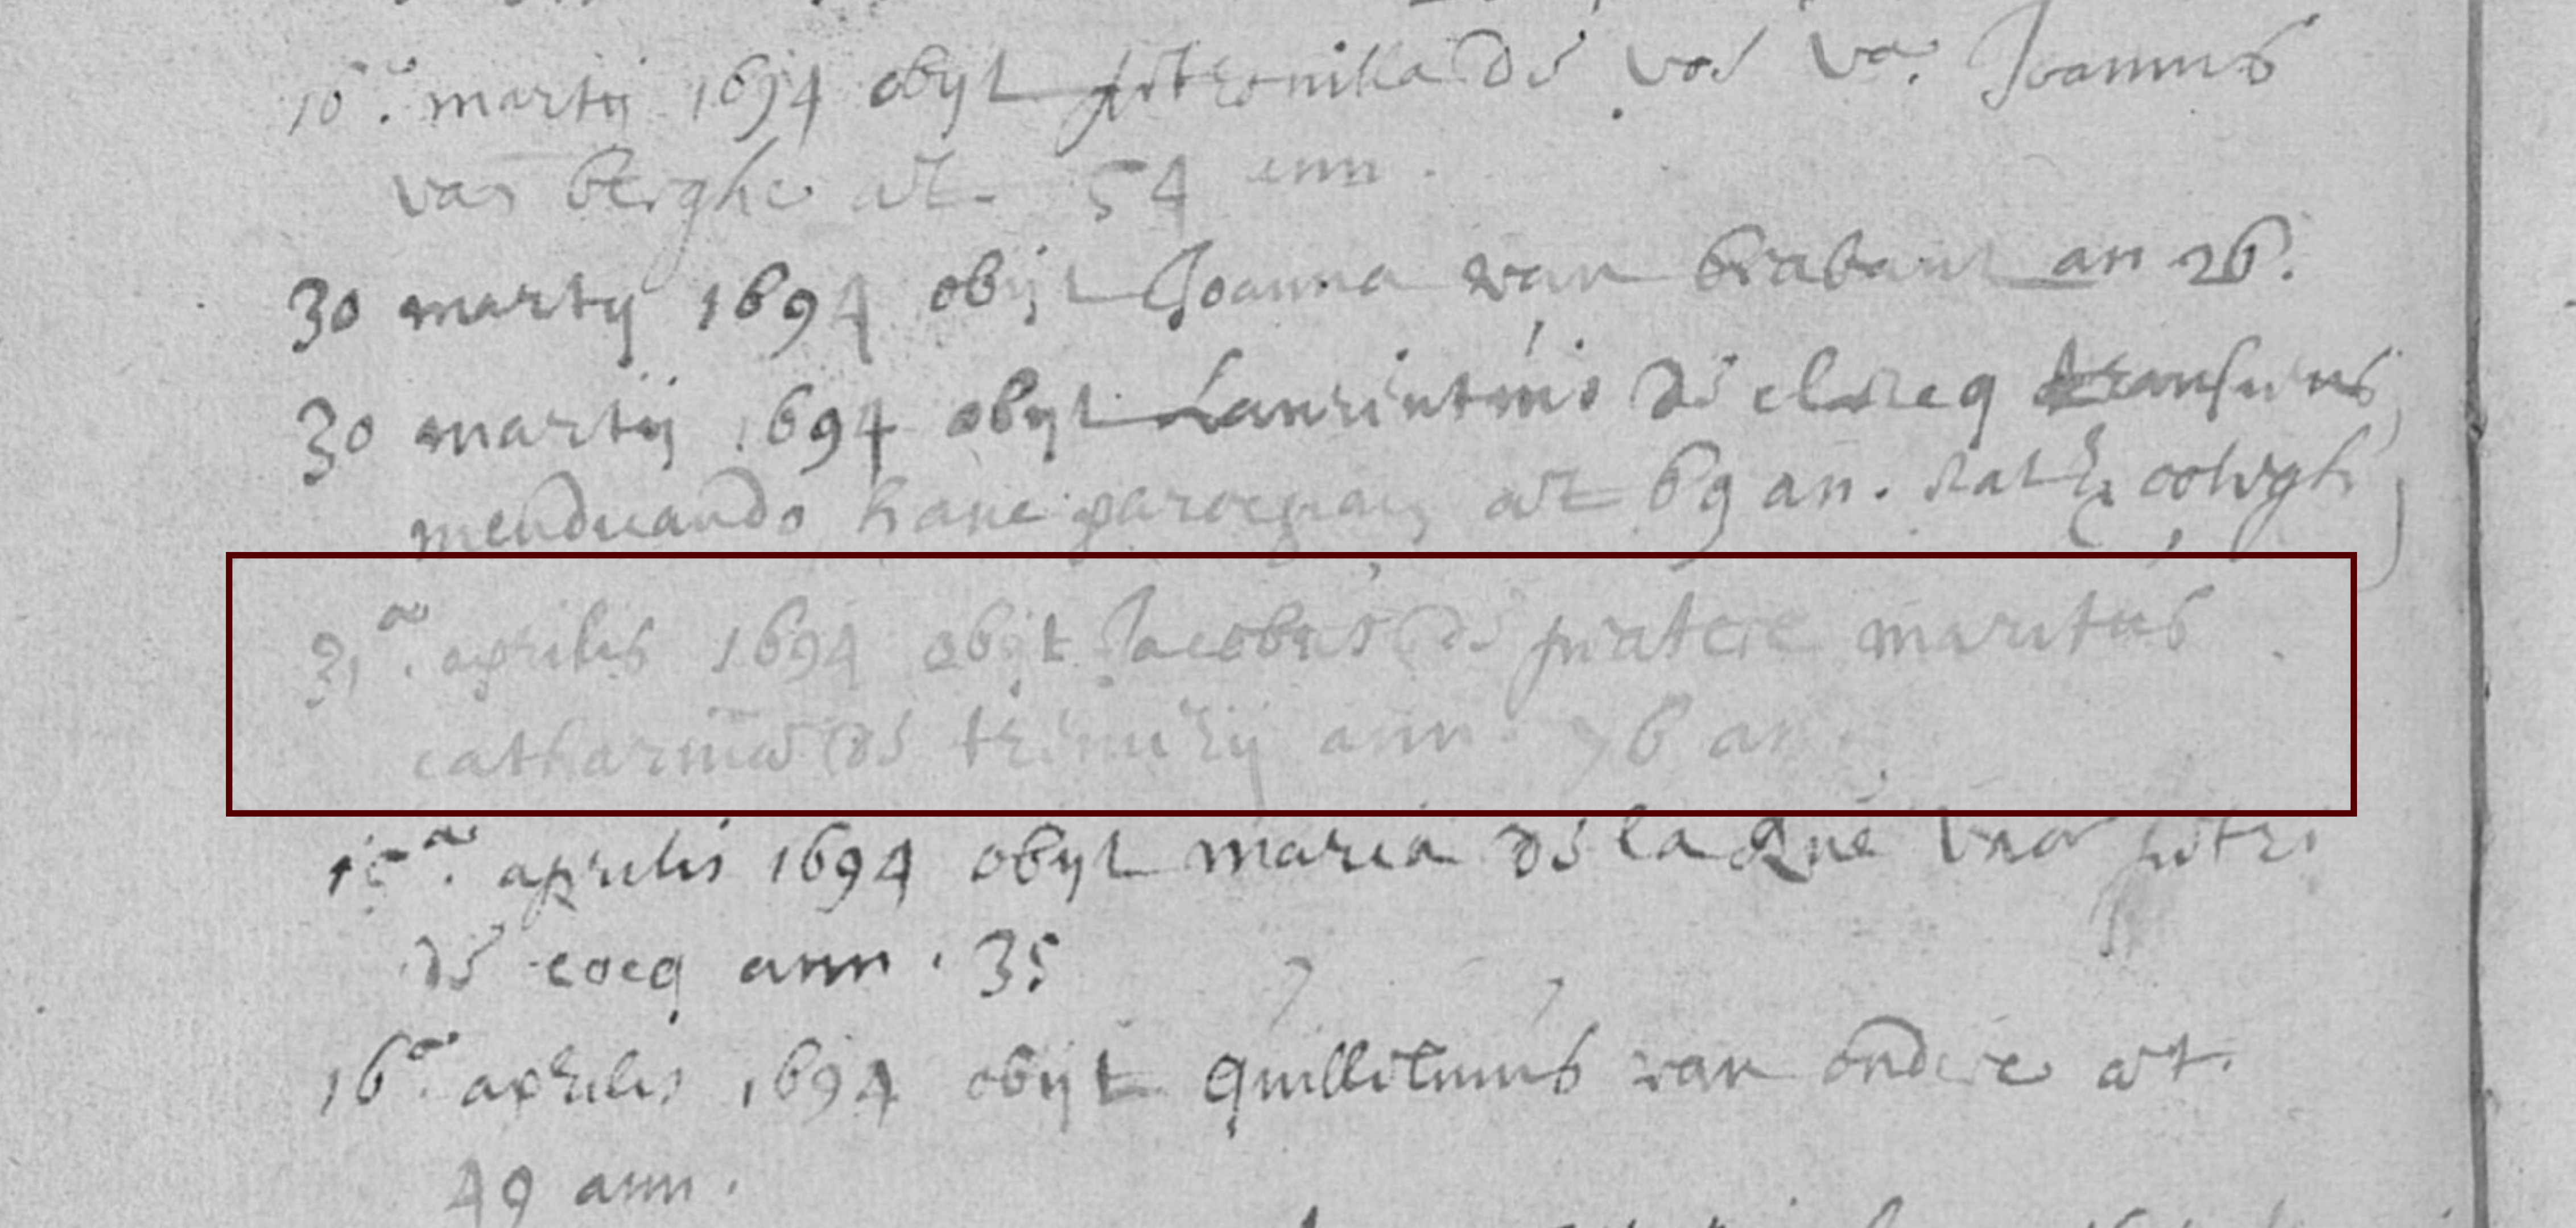 16a. martij 1694 obyt petronilla de vos va. Joannis
van berghe aet. 54 ann.
30 martij 1694 obyt Joanna van brabant an 26.
30 martij 1694 obyt Laurentius de clercq transiens
mendicando hanc parochiam aet 69 an.
aprilis 1694 obyt Jacobus de pratere maritus
catharinae de ann. 76 an.
aprilis 1694 obyt maria de la Rue petri
de cocq ann. 35
16a. aprilis 1694 obyt guillielmus van ondere aet.
49 ann.